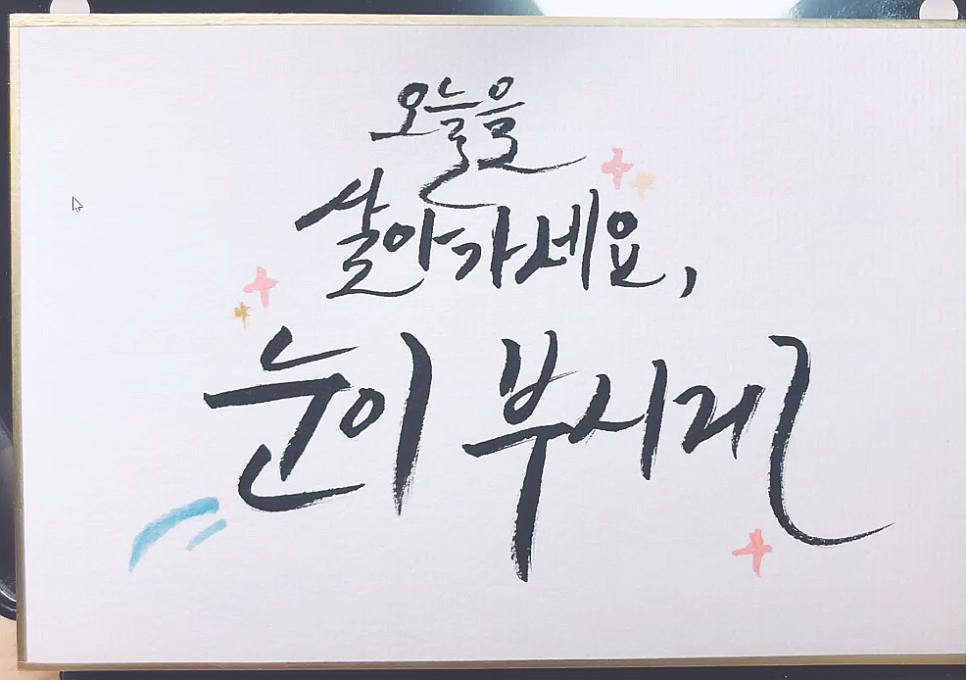 오늘을
살아가세요,
눈이 부시게